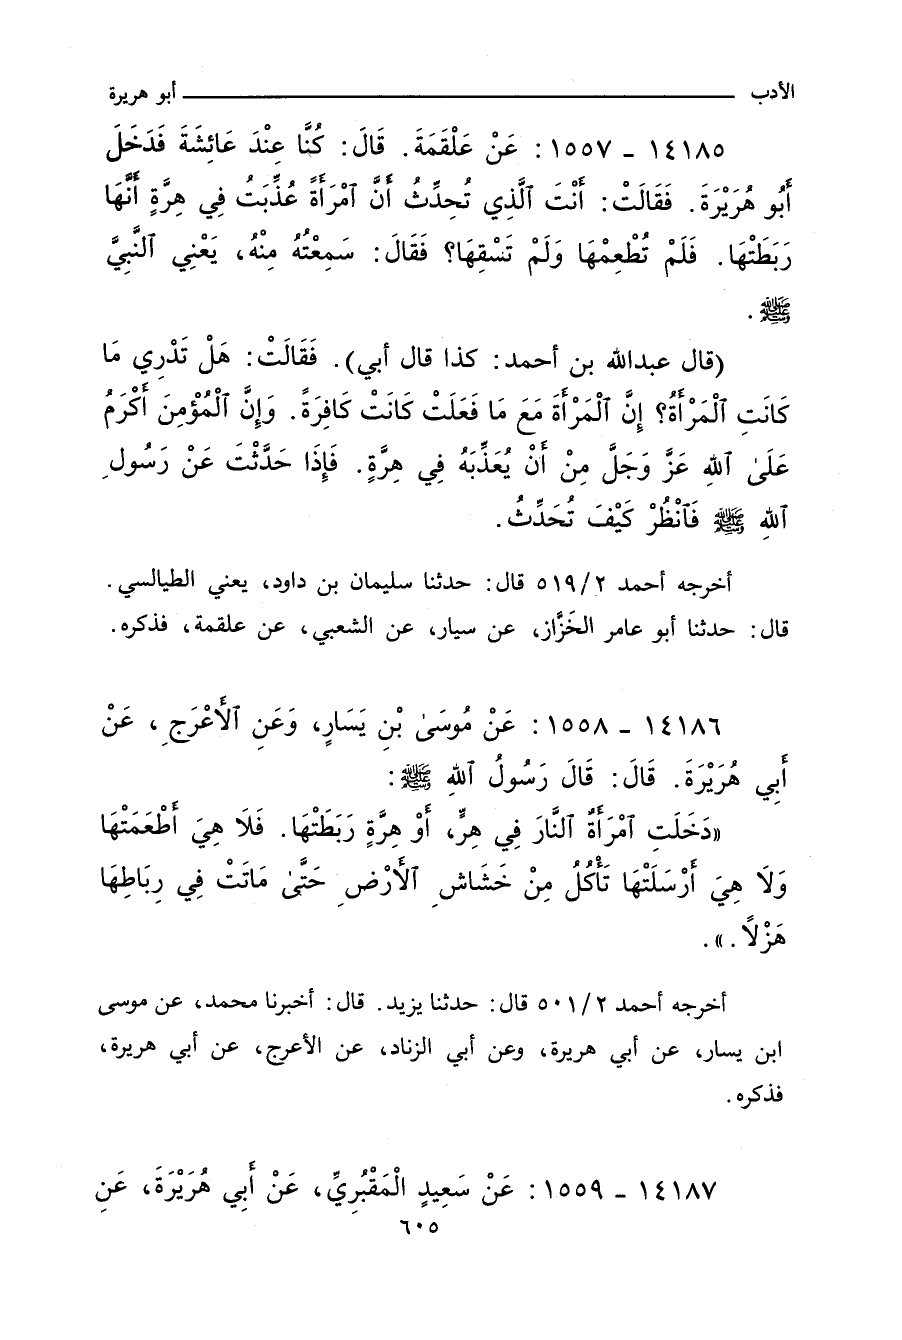 الأدب ــــــــــــــــــــ أبو هريرة
١٤١٨٥ - ١٥٥٧ : عَنْ عَلْقَمَةَ. قَالَ: كُنَّا عِنْدَ عَائِشَةَ فَدَخَلَ
أَبُو هُرَيْرَةَ. فَقَالَتْ: أَنْتَ ٱلَّذِي تُحَدِّثُ أَنَّ ٱمْرَأَةً عُذِّبَتُ فِي هِرَّةٍ أَنَّهَا
رَبَطَتْهَا. فَلَمْ تُطْعِمْهَا وَلَمْ تَسْقِهَا؟ فَقَالَ: سَمِعْتُهُ مِنْهُ، يَعْنِي ٱلنَّبِيَّ
ﷺ .
(قال عبدالله بن أحمد: كذا قال أبي). فَقَالَتْ: هَلْ تَدْرِي مَا
كَانَتِ ٱلْمَرْأَةُ؟ إِنَّ ٱلْمَرْأَةَ مَعَ مَا فَعَلَتْ كَانَتْ كَافِرَةً. وَإِنَّ ٱلْمُؤْمِنَ أَكْرَمُ
عَلَىٰ ٱللهِ عَزَّ وَجَلَّ مِنْ أَنْ يُعَذِّبَهُ فِي هِرَّةٍ. فَإِذَا حَدَّثْتَ عَنْ رَسُولِ
ٱللهِ ﷺ فَٱنْظُرْ كَيْفَ تُحَدِّثُ.
أخرجه أحمد ٥١٩/٢ قال: حدثنا سليمان بن داود، يعني الطيالسي.
قال: حدثنا أبو عامر الخَزَّاز، عن سيار، عن الشعبي، عن علقمة، فذكره.
١٤١٨٦ - ١٥٥٨ : عَنْ مُوسَىٰ بْنِ يَسَارٍ، وَعَنِ ٱلأَعْرَجِ، عَنْ
أَبِي هُرَيْرَةَ. قَالَ: قَالَ رَسُولُ ٱللهِ ﷺ :
«دَخَلَتِ ٱمْرَأَةٌ ٱلنَّارَ فِي هِرٍّ، أَوْ هِرَّةٍ رَبَطَتْهَا. فَلَا هِيَ أَطْعَمَتْهَا
وَلَا هِيَ أَرْسَلَتْهَا تَأْكُلُ مِنْ خَشَاشِ ٱلأَرْضِ حَتَّىٰ مَاتَتْ فِي رِبَاطِهَا
هَزْلاً.».
أخرجه أحمد ٥٠١/٢ قال: حدثنا يزيد. قال: أخبرنا محمد، عن موسى
ابن يسار، عن أبي هريرة، وعن أبي الزناد، عن الأعرج، عن أبي هريرة،
فذكره.
١٤١٨٧ - ١٥٥٩ : عَنْ سَعِيدٍ الْمَقْبُرِيِّ، عَنْ أَبِي هُرَيْرَةَ، عَنِ
٦٠٥